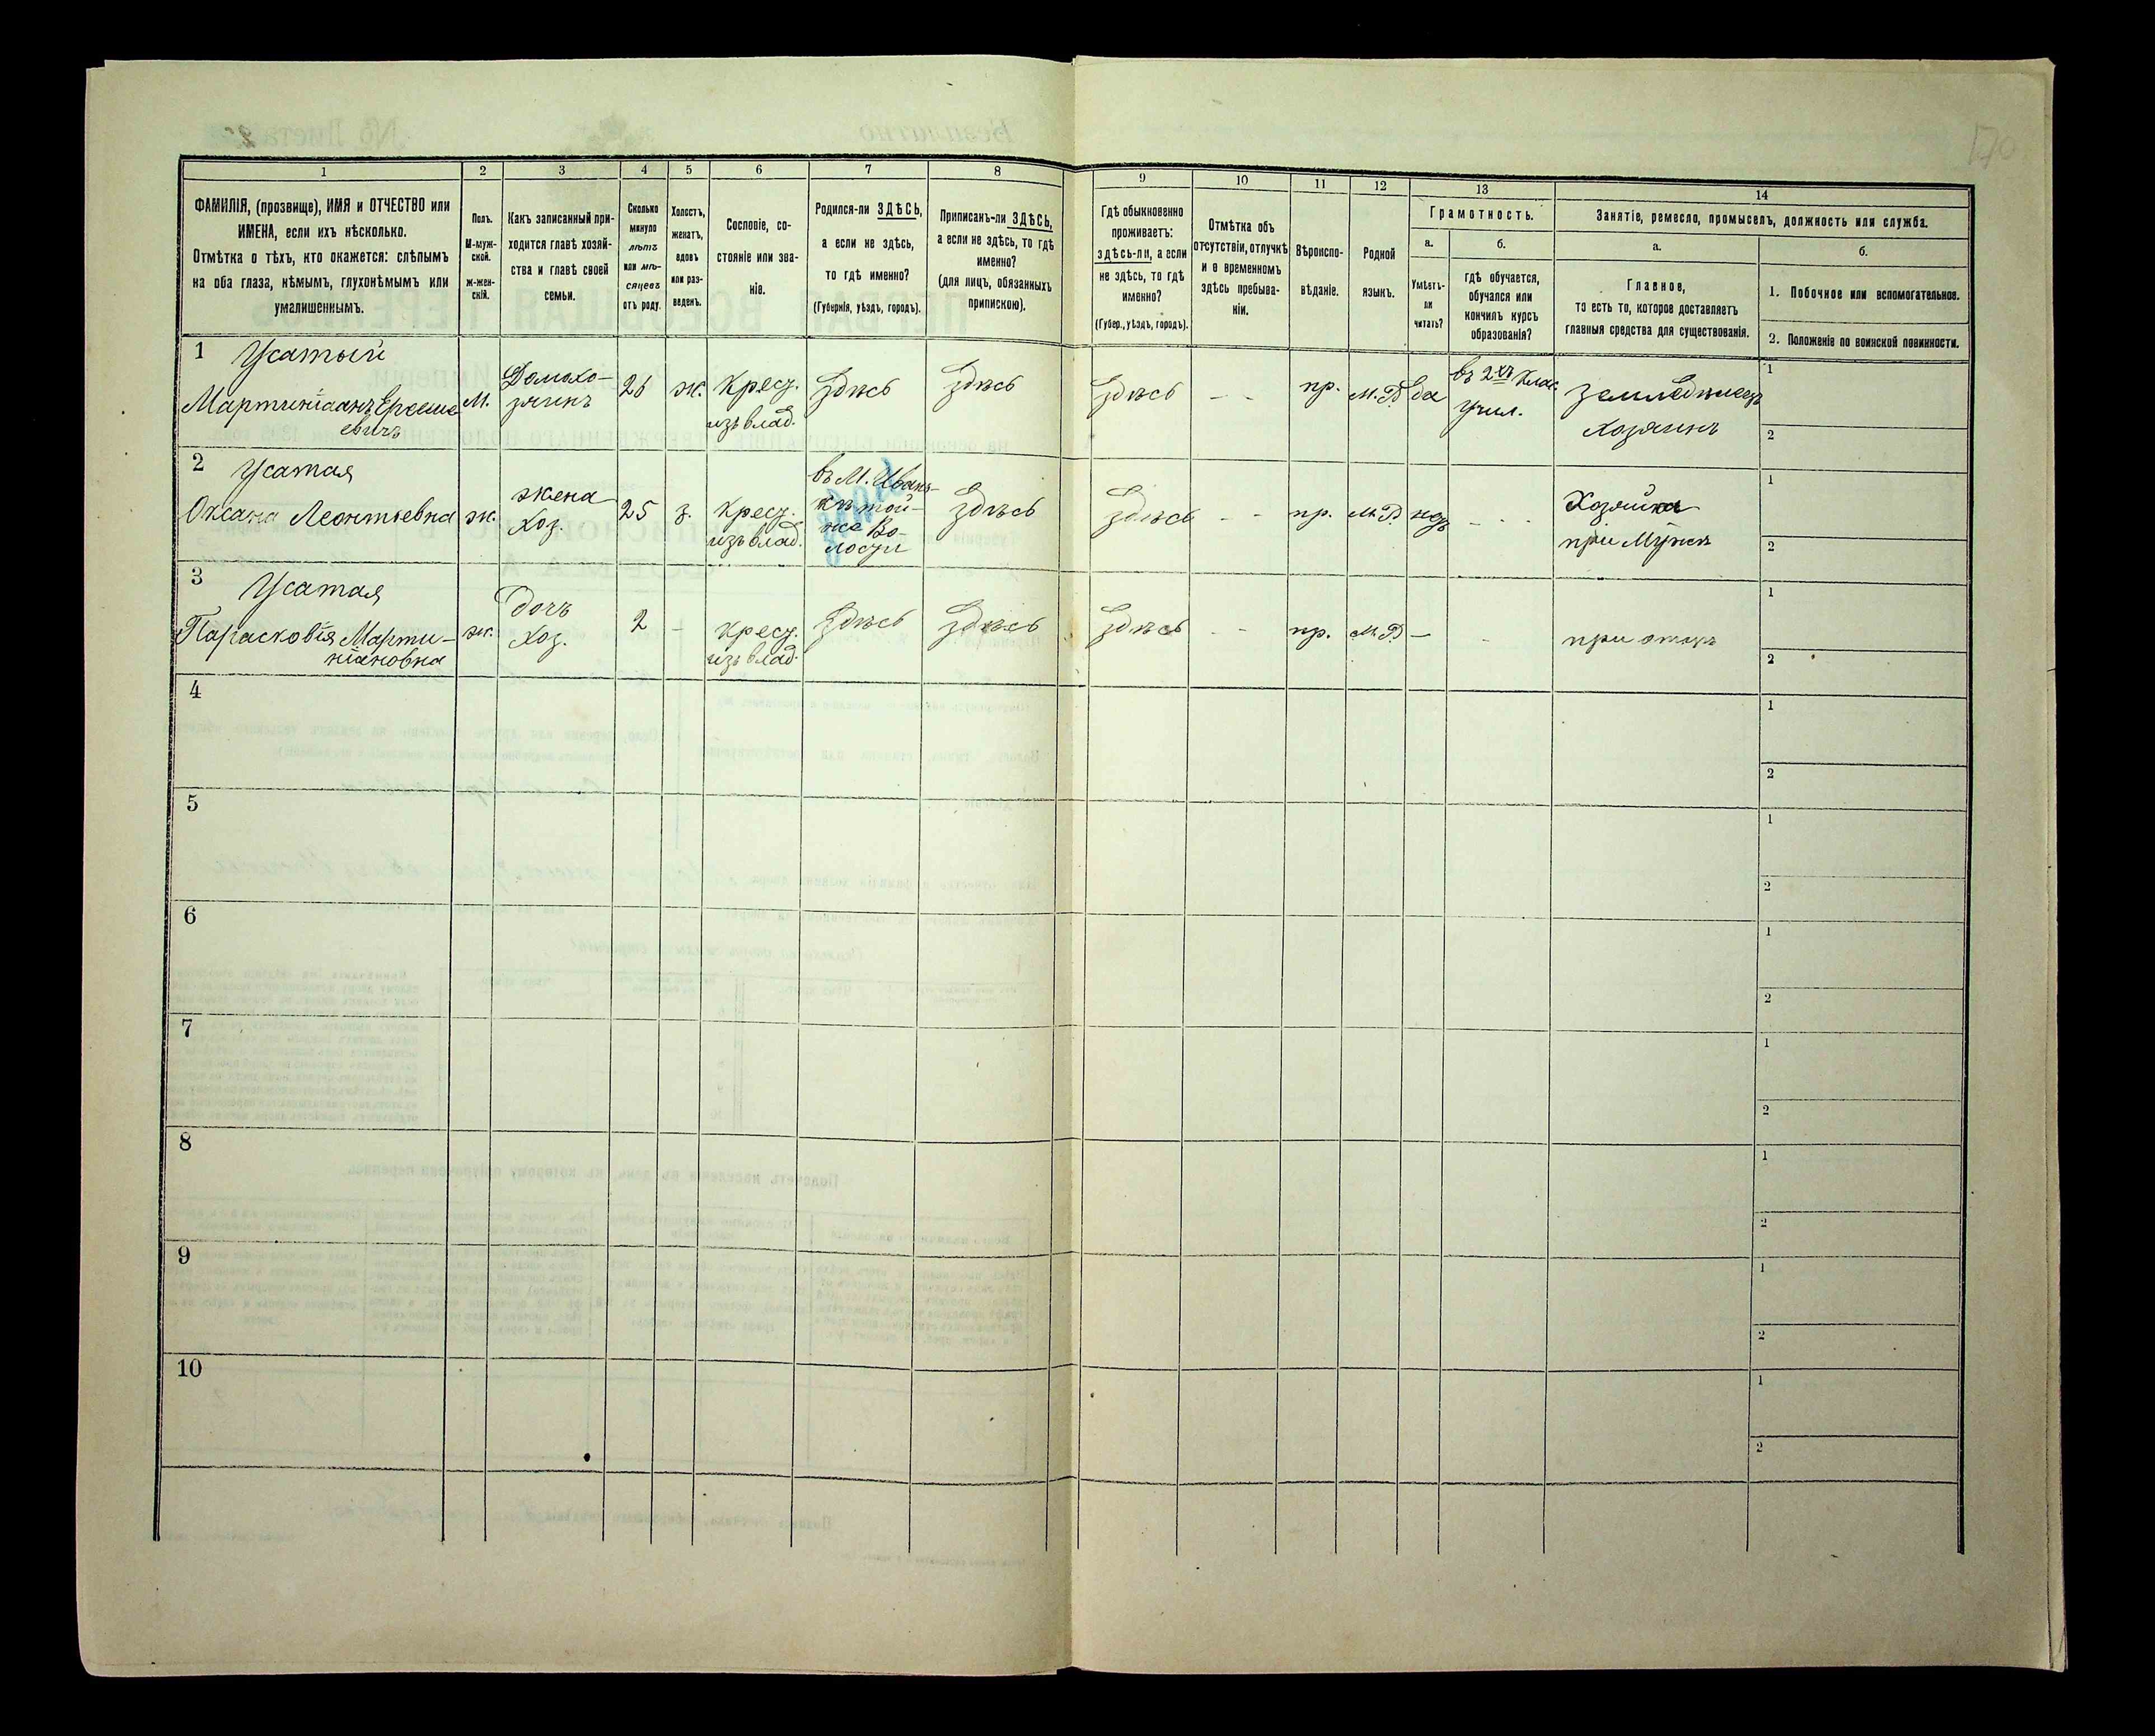 170
1 2 3 4 5 6 7 8 9 10 11 12 13 14
ФАМИЛІЯ, (прозвище), ИМЯ и ОТЧЕСТВО или
ИМЕНА, если ихъ нѣсколько.
Отмѣтка о тѣхъ, кто окажется: слѣпымъ
на оба глаза, нѣмымъ, глухонѣмымъ или
умалишеннымъ.
Полъ.
М-муж-
ской.
ж-жен-
скій.
Какъ записанный при-
ходится главѣ хозяй-
ства и главѣ своей
семьи.
Сколько
минуло
лѣтъ
или мѣ-
сяцевъ
отъ роду.
Холостъ,
женатъ,
вдовъ
или раз-
веденъ.
Сословіе, со-
стояніе или зва-
ніе.
Родился-ли ЗДѢСЬ,
а если не здѣсь,
то гдѣ именно?
(Губернія, уѣздъ, городъ).
Приписанъ-ли ЗДѢСЬ,
а если не здѣсь, то гдѣ
именно?
(для лицъ, обязанныхъ
припискою).
Гдѣ обыкновенно
проживаетъ:
здѣсь-ли, а если
не здѣсь, то гдѣ
именно?
(Губер., уѣздъ, городъ).
Отмѣтка объ
отсутствіи, отлучкѣ
и о временномъ
здѣсь пребыва-
ніи.
Вѣроиспо-
вѣданіе.
Родной
языкъ.
Грамотность.
а.
Умѣетъ-
ли
читать?
б.
гдѣ обучается,
обучался или
кончилъ курсъ
образованія?
Занятіе, ремесло, промыселъ, должность или служба.
а.
Главное,
то есть то, которое доставляетъ
главныя средства для существованія.
б.
1. Побочное или вспомогательное.
2. Положеніе по воинской повинности.
1 Усатый
Мартиніанъ
евичъ
м.
Домохо-
зяинъ
26
ж.
Крест.
изъ влад.
Здѣсь
Здѣсь
Здѣсь
- -
пр.
М.Р.
да
въ 2хъ Клас.
учил.
Земледѣлецъ
Хозяинъ
1
2
2 Усатая
Оксана Леонтьевна
ж.
жена
Хоз.
25
з.
Крест.
изъ влад.
въ М. Иван-
кѣ той-
же Во-
лости
Здѣсь
Здѣсь
- -
пр.
М.Р.
нѣтъ
- - -
Хозяйка
при Мужѣ
1
2
3 Усатая
Парасковія Марти-
ніановна
ж.
Дочь
Хоз.
2
-
Крест.
изъ влад.
Здѣсь
Здѣсь
Здѣсь
- -
пр.
М.Р.
-
-
при отцѣ
1
2
4
1
2
5
1
2
6
1
2
7
1
2
8
1
2
9
1
2
10
1
2